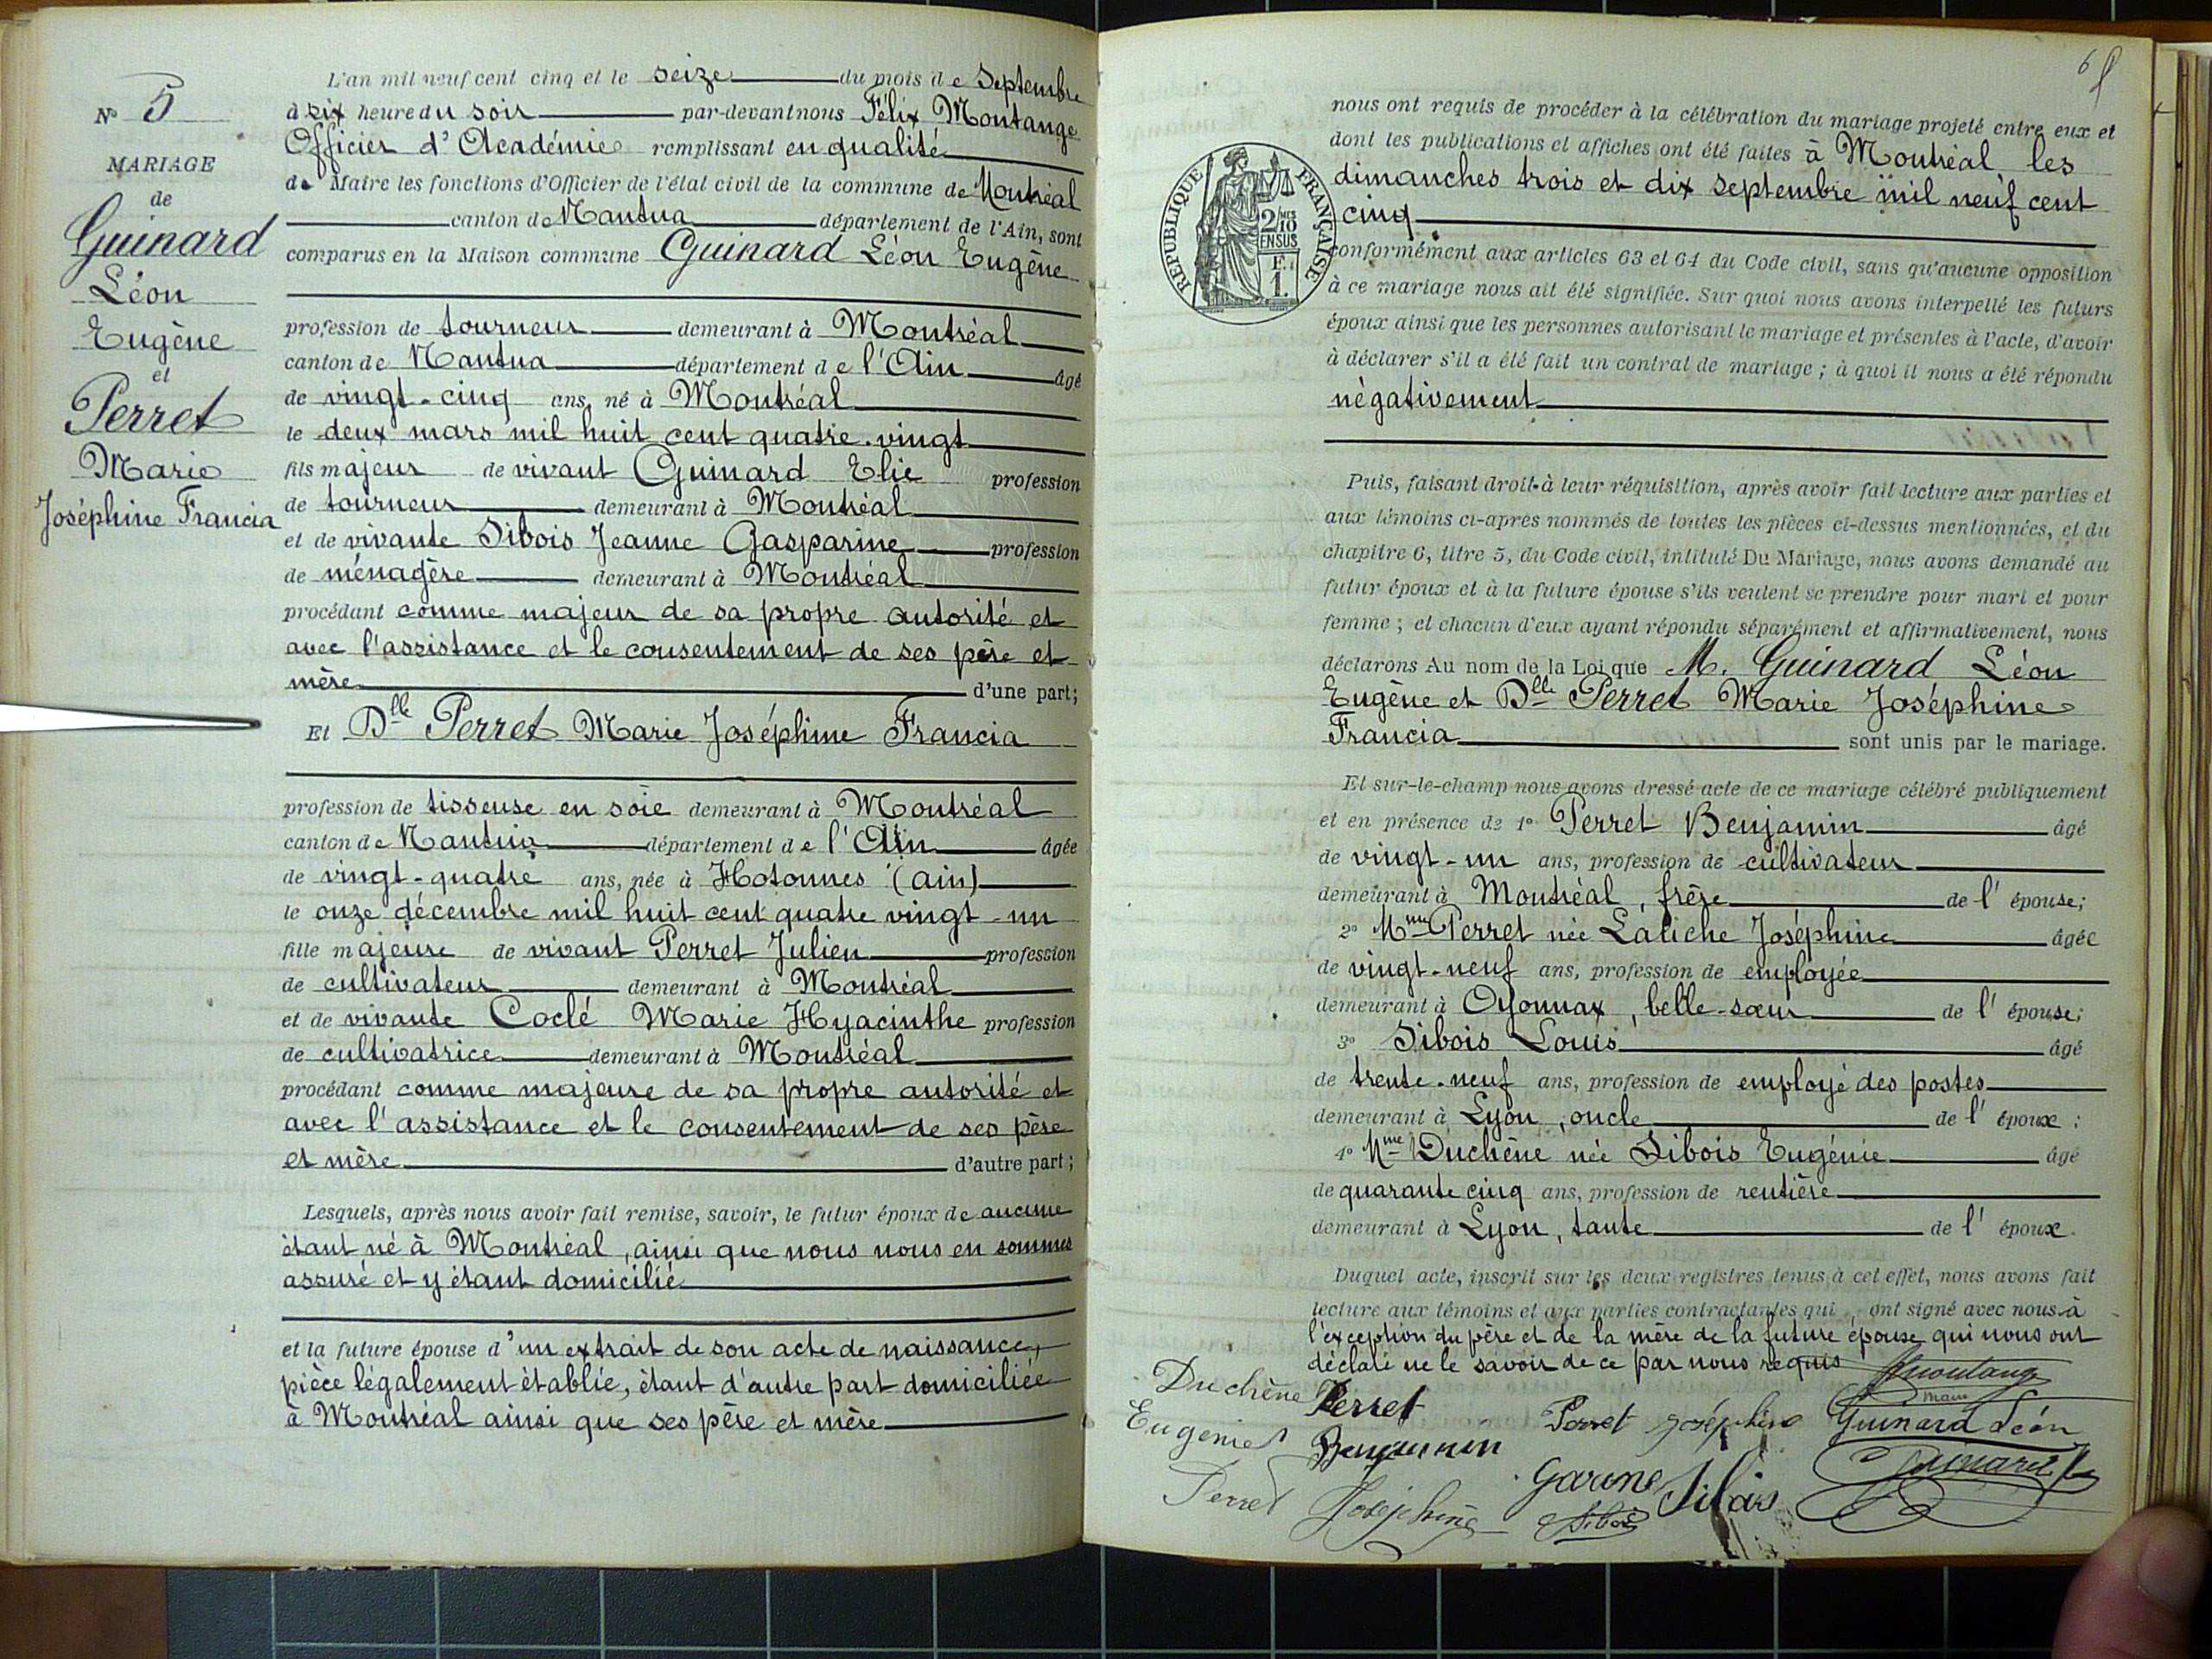 N° 5
MARIAGE
de
Guinard
Léon
Eugène
et
Perret
Marie
Joséphine Francia
L'an mil neuf cent cinq et le seize du mois de Septembre
à six heure du soir par-devant nous Félix Montange
Officier d'Académie remplissant en qualité
de Maire les fonctions d'Officier de l'état civil de la commune de Montréal
canton de Nantua département de l'Ain, sont
comparus en la Maison commune Guinard Léon Eugène
profession de tourneur demeurant à Montréal
canton de Nantua département de l'Ain âgé
de vingt-cinq ans, né à Montréal
le deux mars mil huit cent quatre-vingt
fils majeur de vivant Guinard Elie profession
de tourneur demeurant à Montréal
et de vivante Sibois Jeanne Gasparine profession
de ménagère demeurant à Montréal
procédant comme majeur de sa propre autorité et
avec l'assistance et le consentement de ses père et
mère d'une part;
Et Dlle Perret Marie Joséphine Francia
profession de tisseuse en soie demeurant à Montréal
canton de Nantua département de l'Ain âgée
de vingt-quatre ans, née à Hotonnes (Ain)
le onze décembre mil huit cent quatre vingt-un
fille majeure de vivant Perret Julien profession
de cultivateur demeurant à Montréal
et de vivante Coclé Marie Hyacinthe profession
de cultivatrice demeurant à Montréal
procédant comme majeure de sa propre autorité et
avec l'assistance et le consentement de ses père
et mère d'autre part;
Lesquels, après nous avoir fait remise, savoir, le futur époux de aucune
étant né à Montréal, ainsi que nous nous en sommes
assuré et y étant domicilié
et la future épouse d'un extrait de son acte de naissance,
pièce légalement établie, étant d'autre part domiciliée
à Montréal ainsi que ses père et mère
nous ont requis de procéder à la célébration du mariage projeté entre eux et
dont les publications et affiches ont été faites à Montréal les
dimanches trois et dix septembre mil neuf cent
cinq
RÉPUBLIQUE FRANÇAISE
2/10
EN SUS
F.
1.
conformément aux articles 63 et 64 du Code civil, sans qu'aucune opposition
à ce mariage nous ait été signifiée. Sur quoi nous avons interpellé les futurs
époux ainsi que les personnes autorisant le mariage et présentes à l'acte, d'avoir
à déclarer s'il a été fait un contrat de mariage; à quoi il nous a été répondu
négativement
Puis, faisant droit à leur réquisition, après avoir fait lecture aux parties et
aux témoins ci-après nommés de toutes les pièces ci-dessus mentionnées, et du
chapitre 6, titre 5, du Code civil, intitulé Du Mariage, nous avons demandé au
futur époux et à la future épouse s'ils veulent se prendre pour mari et pour
femme; et chacun d'eux ayant répondu séparément et affirmativement, nous
déclarons Au nom de la Loi que M. Guinard Léon
Eugène et Dlle Perret Marie Joséphine
Francia sont unis par le mariage.
Et sur-le-champ nous avons dressé acte de ce mariage célébré publiquement
et en présence de 1° Perret Benjamin âgé
de vingt-un ans, profession de cultivateur
demeurant à Montréal, frère de l'épouse;
2° Mme Perret née Laliche Joséphine âgée
de vingt-neuf ans, profession de employée
demeurant à Oyonnax, belle-sœur de l'épouse;
3° Sibois Louis âgé
de trente-neuf ans, profession de employé des postes
demeurant à Lyon, oncle de l'époux;
4° Mme Duchêne née Sibois Eugénie âgé
de quarante cinq ans, profession de rentière
demeurant à Lyon, tante de l'époux.
Duquel acte, inscrit sur les deux registres tenus à cet effet, nous avons fait
lecture aux témoins et aux parties contractantes qui ont signé avec nous à
l'exception du père et de la mère de la future épouse qui nous ont
déclaré ne le savoir de ce par nous requis
Montange
maire
Duchêne Perret
Eugénie Benjamin Perret Joséphine Guinard Léon
Guinard
Perret Joséphine Sibois